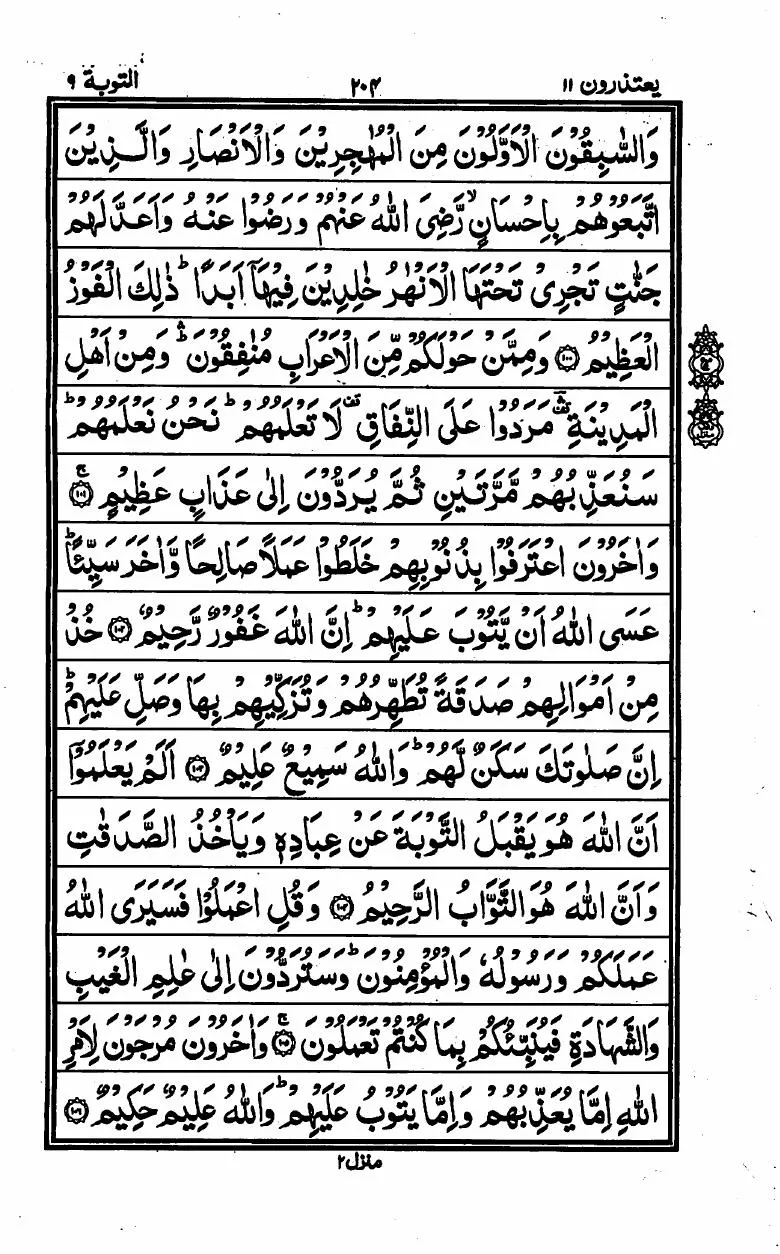 يعتذرون ١١ ٢٠٤ التوبة ٩
وَالسّٰبِقُوْنَ الْاَوَّلُوْنَ مِنَ الْمُهٰجِرِيْنَ وَالْاَنْصَارِ وَالَّذِيْنَ
اتَّبَعُوْهُمْ بِاِحْسَانٍ ۙ رَّضِىَ اللّٰهُ عَنْهُمْ وَرَضُوْا عَنْهُ وَاَعَدَّ لَهُمْ
جَنّٰتٍ تَجْرِىْ تَحْتَهَا الْاَنْهٰرُ خٰلِدِيْنَ فِيْهَاۤ اَبَدًا ؕ ذٰلِكَ الْفَوْزُ
الْعَظِيْمُ ﴿۱۰۰﴾ وَمِمَّنْ حَوْلَكُمْ مِّنَ الْاَعْرَابِ مُنٰفِقُوْنَ ۛؕ وَمِنْ اَهْلِ
الْمَدِيْنَةِ ۛؔ مَرَدُوْا عَلَى النِّفَاقِ لَا تَعْلَمُهُمْ ؕ نَحْنُ نَعْلَمُهُمْ ؕ
سَنُعَذِّبُهُمْ مَّرَّتَيْنِ ثُمَّ يُرَدُّوْنَ اِلٰى عَذَابٍ عَظِيْمٍ ۚ﴿۱۰۱﴾
وَاٰخَرُوْنَ اعْتَرَفُوْا بِذُنُوْبِهِمْ خَلَطُوْا عَمَلًا صَالِحًا وَّاٰخَرَ سَيِّئًا ؕ
عَسَى اللّٰهُ اَنْ يَّتُوْبَ عَلَيْهِمْ ؕ اِنَّ اللّٰهَ غَفُوْرٌ رَّحِيْمٌ ﴿۱۰۲﴾ خُذْ
مِنْ اَمْوَالِهِمْ صَدَقَةً تُطَهِّرُهُمْ وَتُزَكِّيْهِمْ بِهَا وَصَلِّ عَلَيْهِمْ ؕ
اِنَّ صَلٰوتَكَ سَكَنٌ لَّهُمْ ؕ وَاللّٰهُ سَمِيْعٌ عَلِيْمٌ ﴿۱۰۳﴾ اَلَمْ يَعْلَمُوْۤا
اَنَّ اللّٰهَ هُوَ يَقْبَلُ التَّوْبَةَ عَنْ عِبَادِهٖ وَيَاْخُذُ الصَّدَقٰتِ
وَاَنَّ اللّٰهَ هُوَ التَّوَّابُ الرَّحِيْمُ ﴿۱۰۴﴾ وَقُلِ اعْمَلُوْا فَسَيَرَى اللّٰهُ
عَمَلَكُمْ وَرَسُوْلُهٗ وَالْمُؤْمِنُوْنَ ؕ وَسَتُرَدُّوْنَ اِلٰى عٰلِمِ الْغَيْبِ
وَالشَّهَادَةِ فَيُنَبِّئُكُمْ بِمَا كُنْتُمْ تَعْمَلُوْنَ ۚ﴿۱۰۵﴾ وَاٰخَرُوْنَ مُرْجَوْنَ لِاَمْرِ
اللّٰهِ اِمَّا يُعَذِّبُهُمْ وَاِمَّا يَتُوْبُ عَلَيْهِمْ ؕ وَاللّٰهُ عَلِيْمٌ حَكِيْمٌ ﴿۱۰۶﴾
منزل ٢